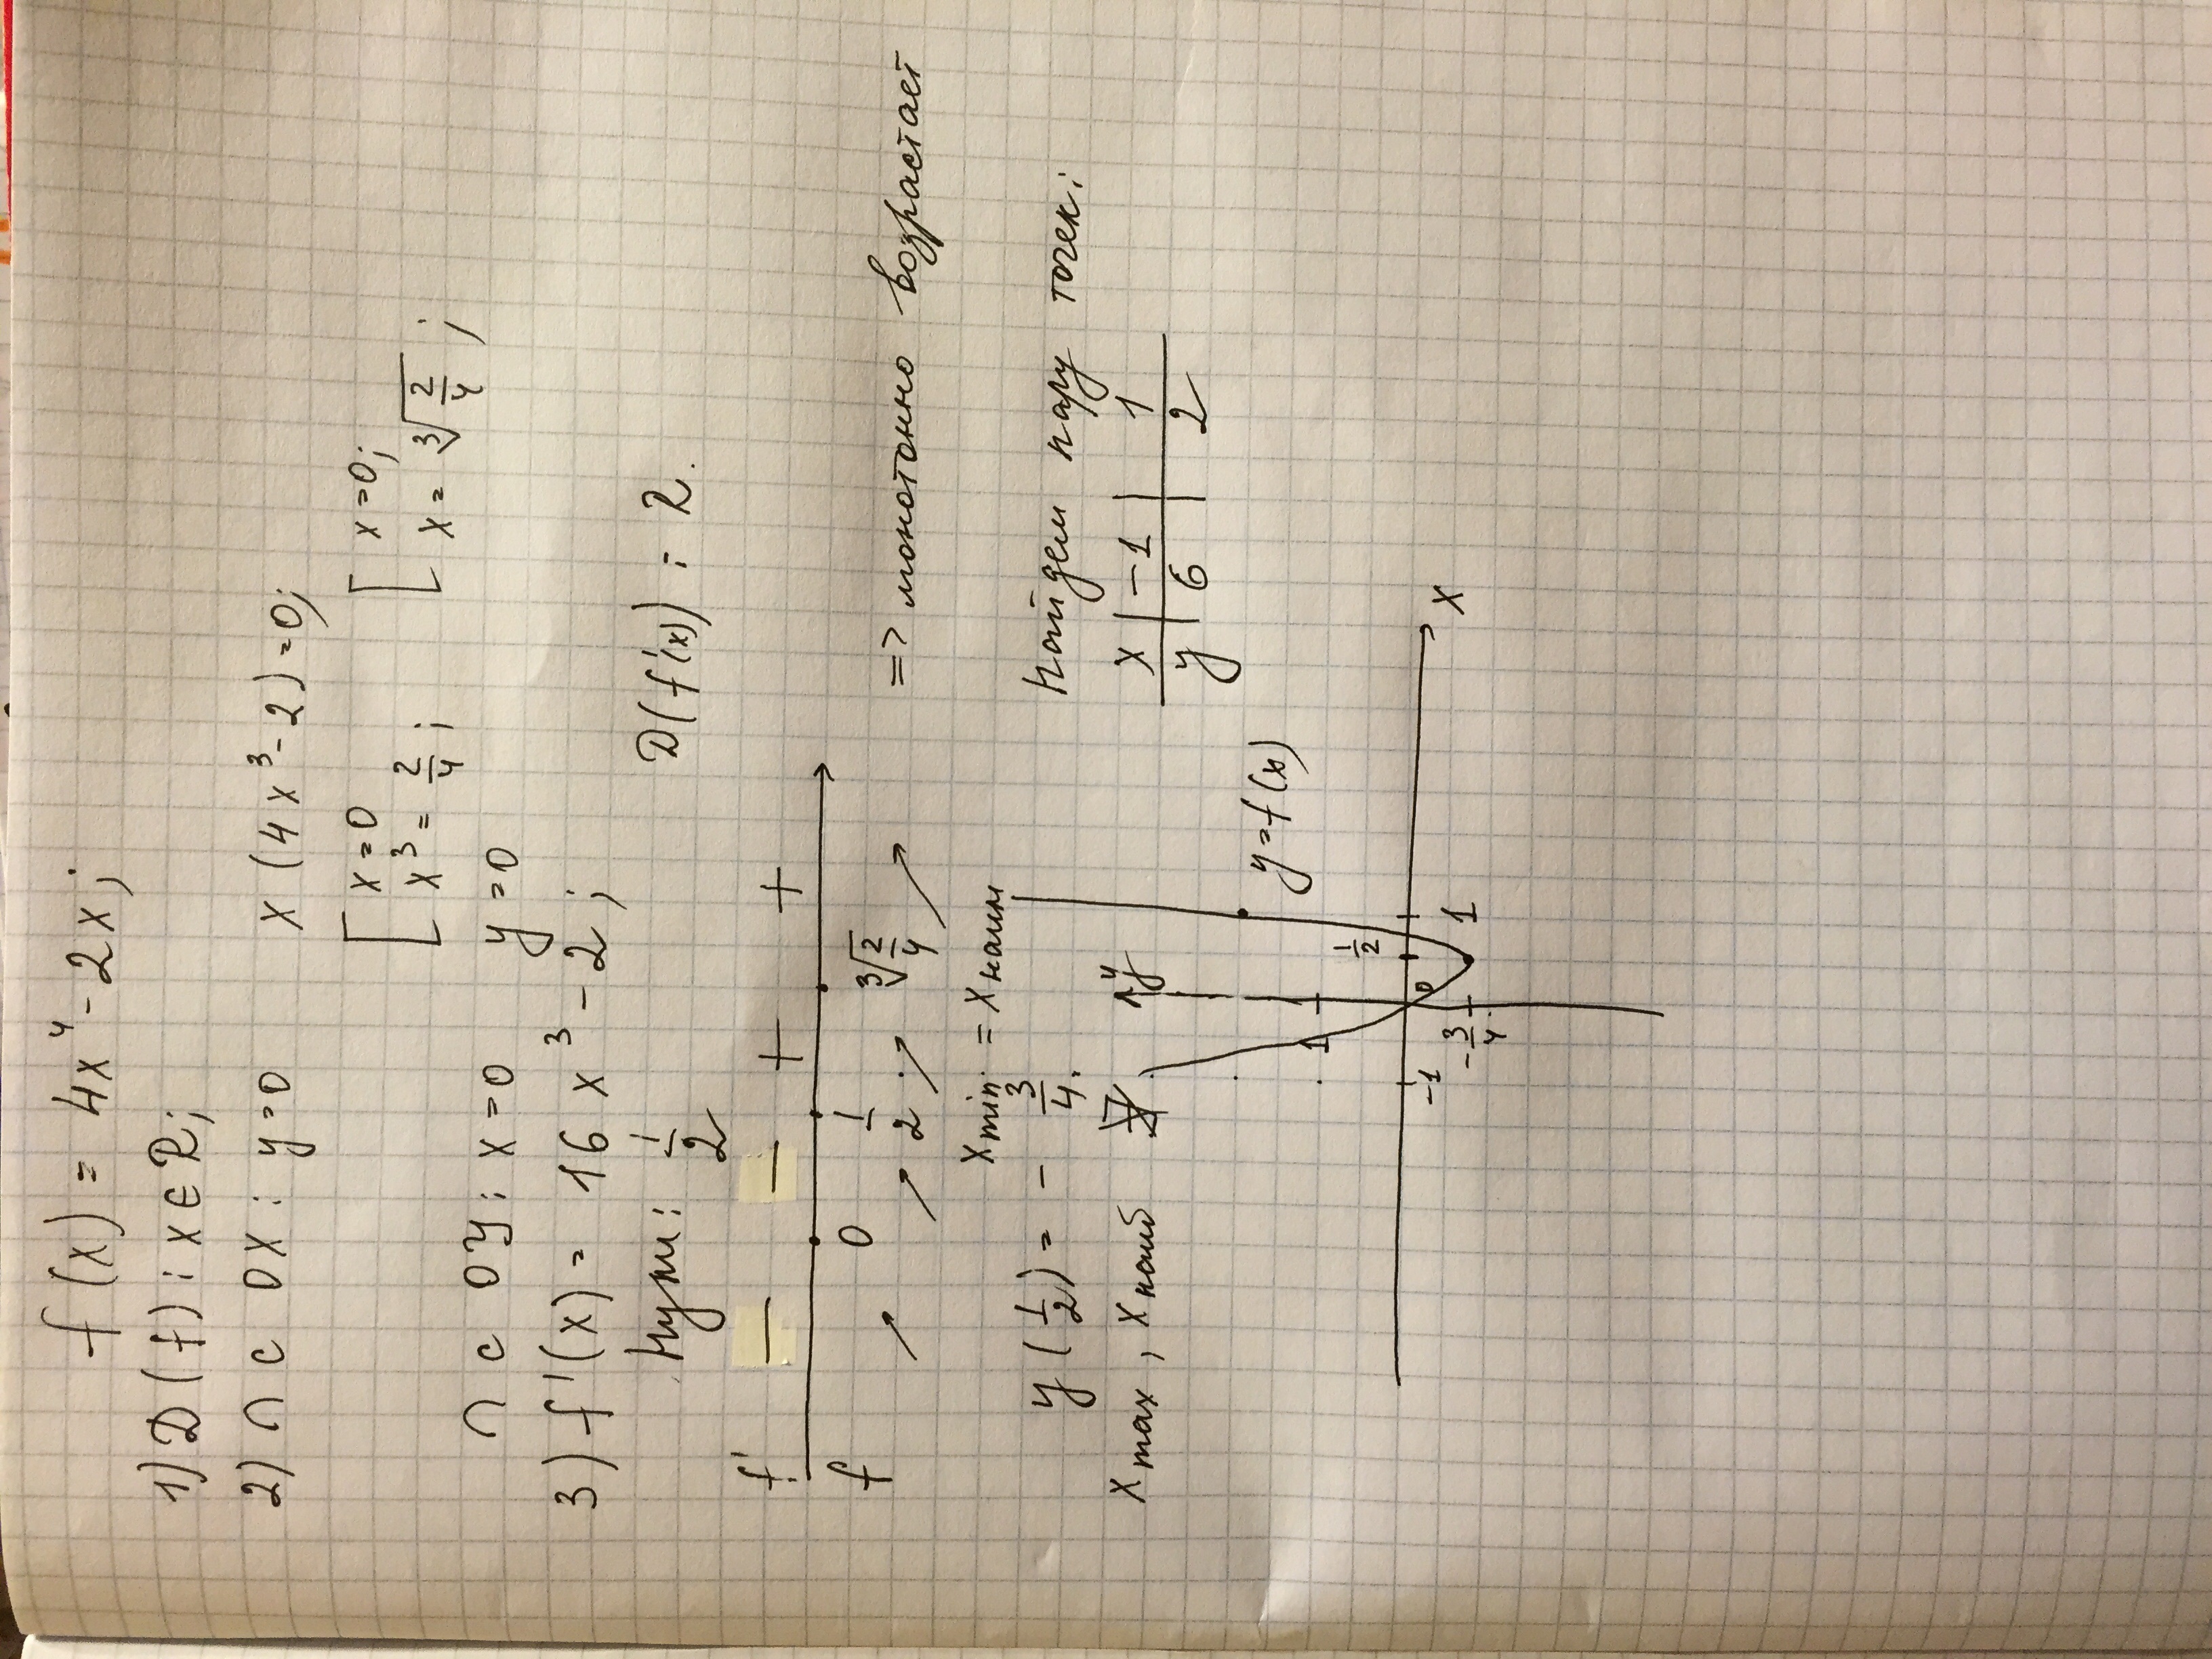 f(x) = 4x⁴ - 2x;
1) D(f): x ∈ R;
2) ∩ с OX: y=0
x(4x³-2)=0;
[ x=0
[ x³ = 2/4;
[ x=0;
[ x = ∛(2/4);
∩ с OY: x=0 y=0
3) f'(x) = 16x³ - 2;
Нули: 1/2
D(f'(x)): R.
f' − − + +
0 1/2 ∛(2/4)
f ↗ ↗ ↗ ↗
=> монотонно возрастает
xmin = xнаим
y(1/2) = - 3/4.
xmax, xнаиб ∄
Найдем пару точек:
x | -1 | 1
y | 6 | 2
y
y=f(x)
1
1/2
-1 0 1 x
-3/4